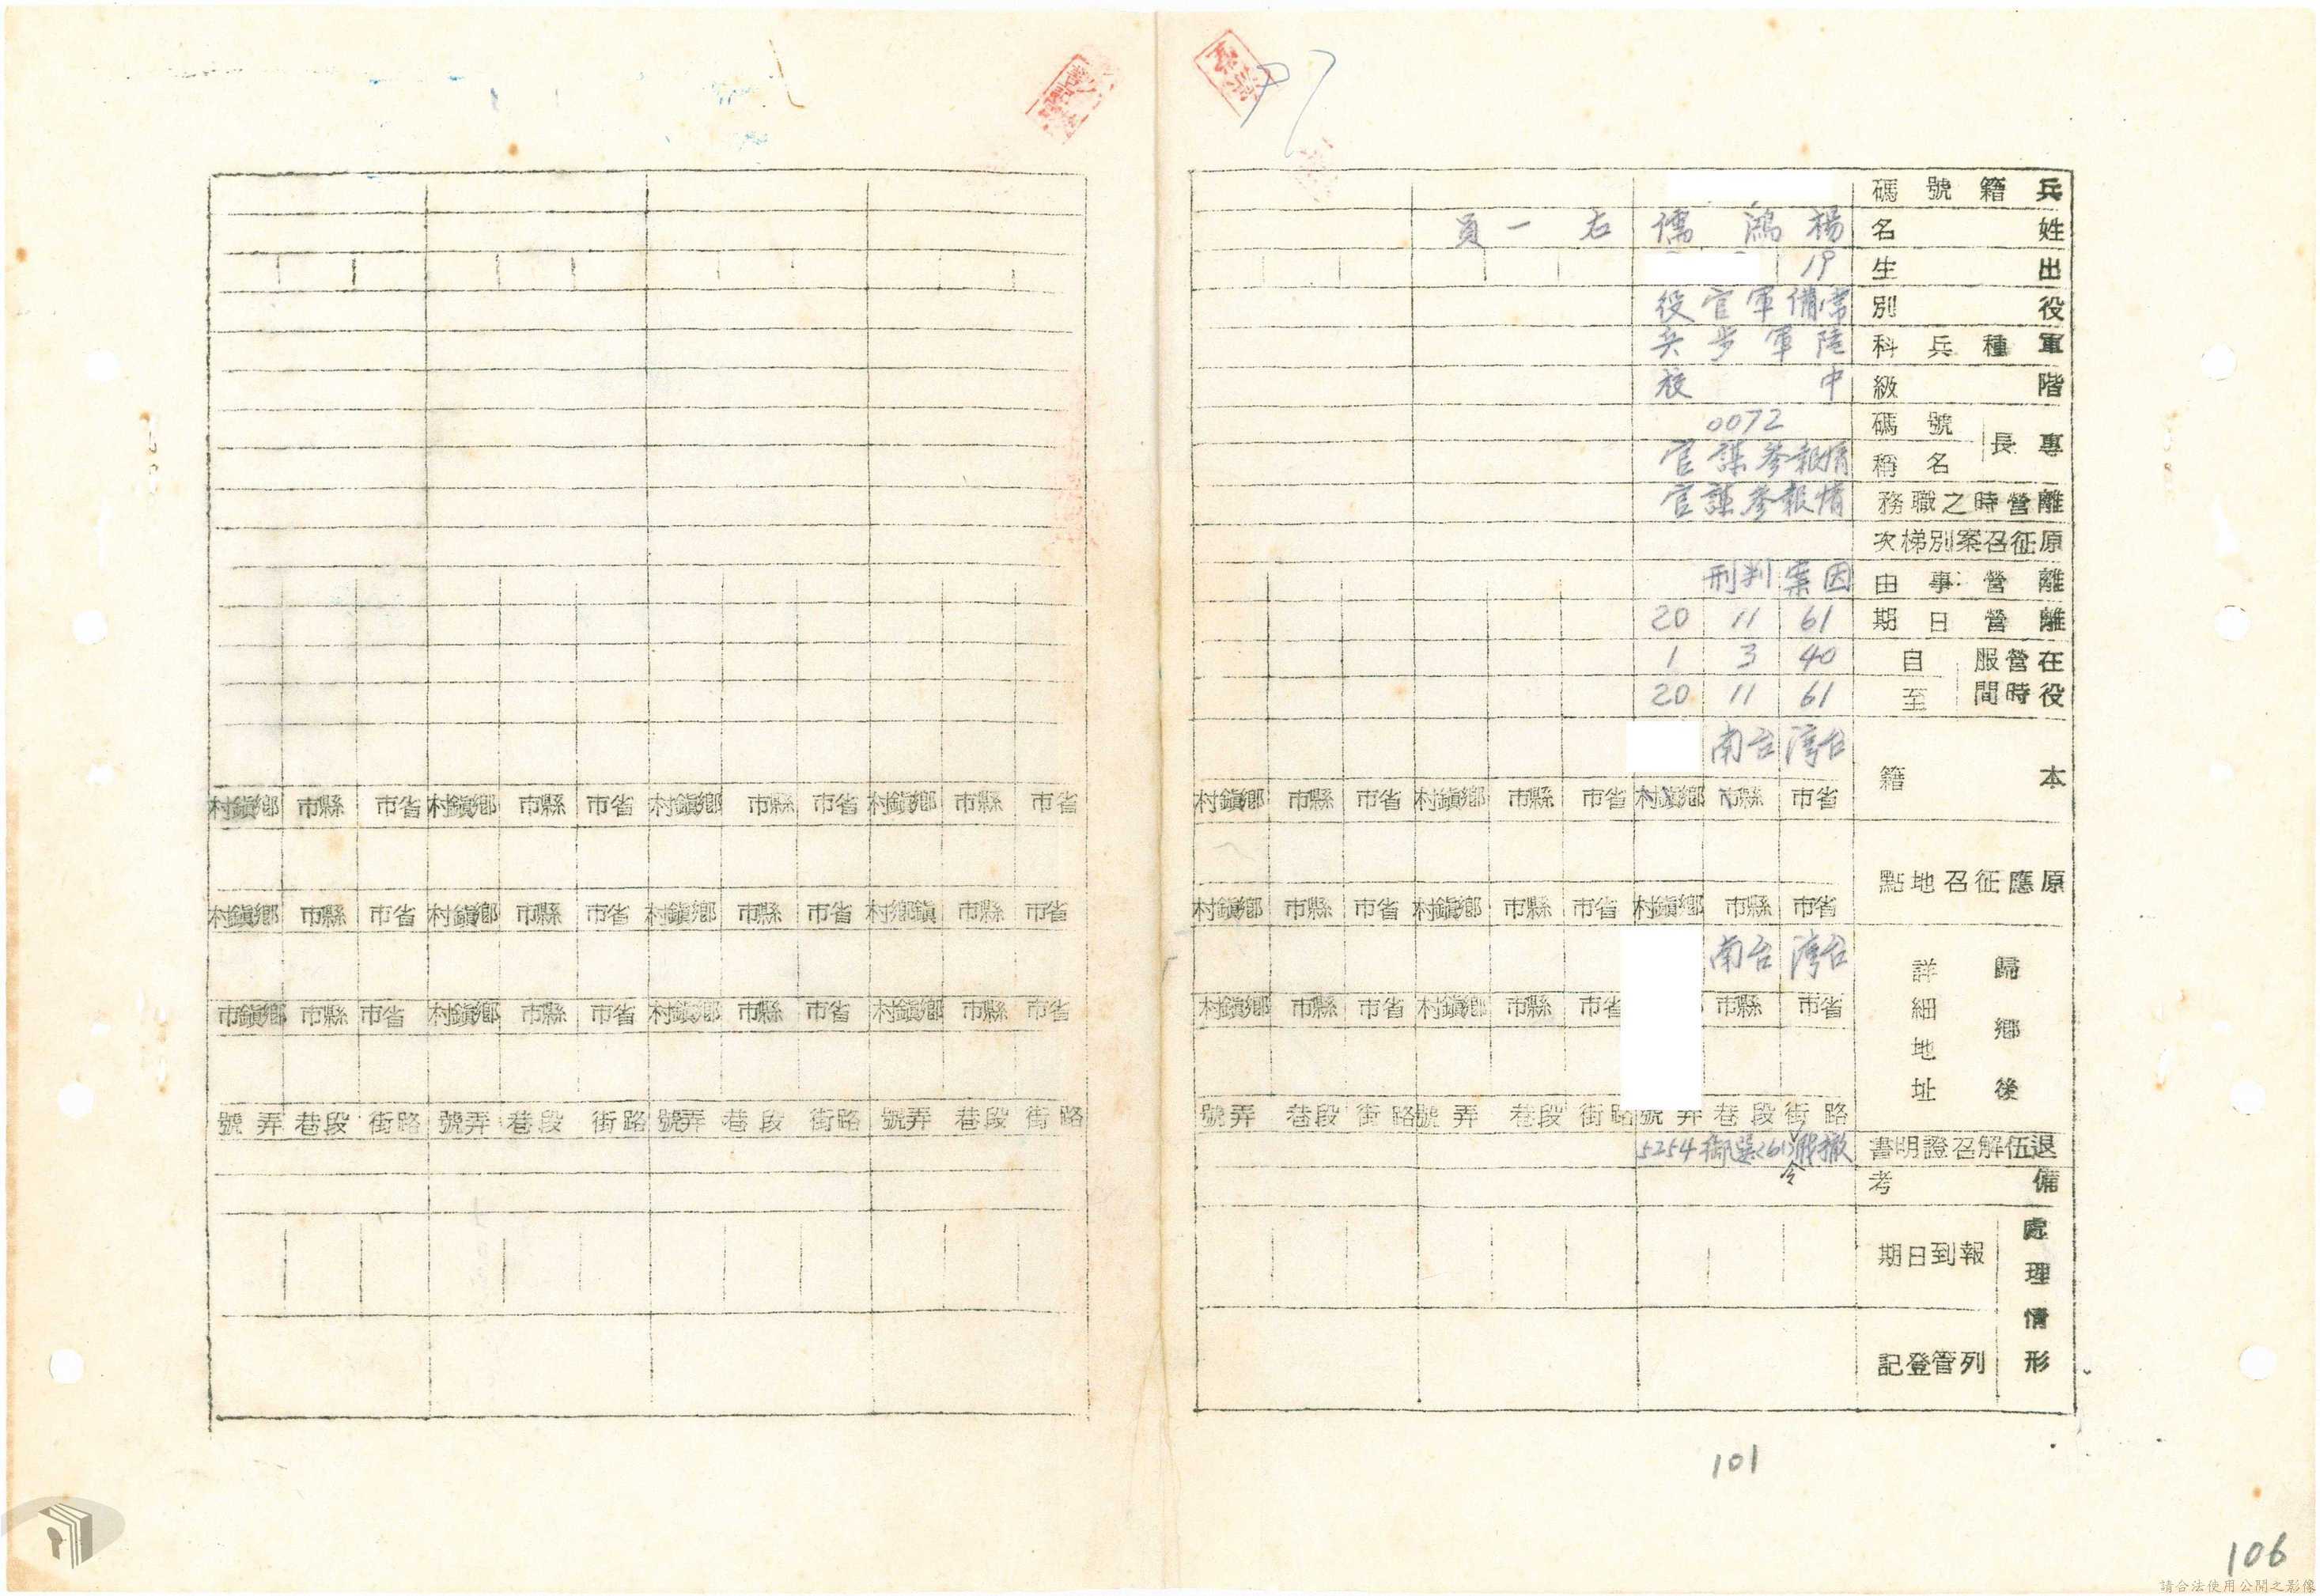 兵籍號碼
姓名 楊鴻儒 右一員
出生 19
役別 常備軍官役
軍種兵科 陸軍步兵
階級 中校
專長 號碼 0072
名稱 情報參謀官
離營時之職務 情報參謀官
原征召案別梯次
離營事由 因案判刑
離營日期 61 11 20
在營服役時間 自 40 3 1
至 61 11 20
本籍 台灣 台南
省市 縣市 鄉鎮村 省市 縣市 鄉鎮村 省市 縣市 鄉鎮村
原應征召地點
省市 縣市 鄉鎮村 省市 縣市 鄉鎮村 省市 縣市 鄉鎮村
歸鄉後詳細地址 台灣 台南
省市 縣市 省市 縣市 鄉鎮村 省市 縣市 鄉鎮村
路街 段巷 弄號 路街 段巷 弄號 路街 段巷 弄號
退伍解召證明書 撤職令(61) 5254
備考
處理情形 報到日期
列管登記
101
省市 縣市 鄉鎮村 省市 縣市 鄉鎮村 省市 縣市 鄉鎮村 省市 縣市 鄉鎮村
省市 縣市 鎮鄉村 省市 縣市 鄉鎮村 省市 縣市 鄉鎮村 省市 縣市 鄉鎮村
省市 縣市 鄉鎮村 省市 縣市 鄉鎮村 省市 縣市 鄉鎮村 省市 縣市 鄉鎮市
路街 段巷 弄號 路街 段巷 弄號 路街 段巷 弄號 路街 段巷 弄號
106
請合法使用公開之影像